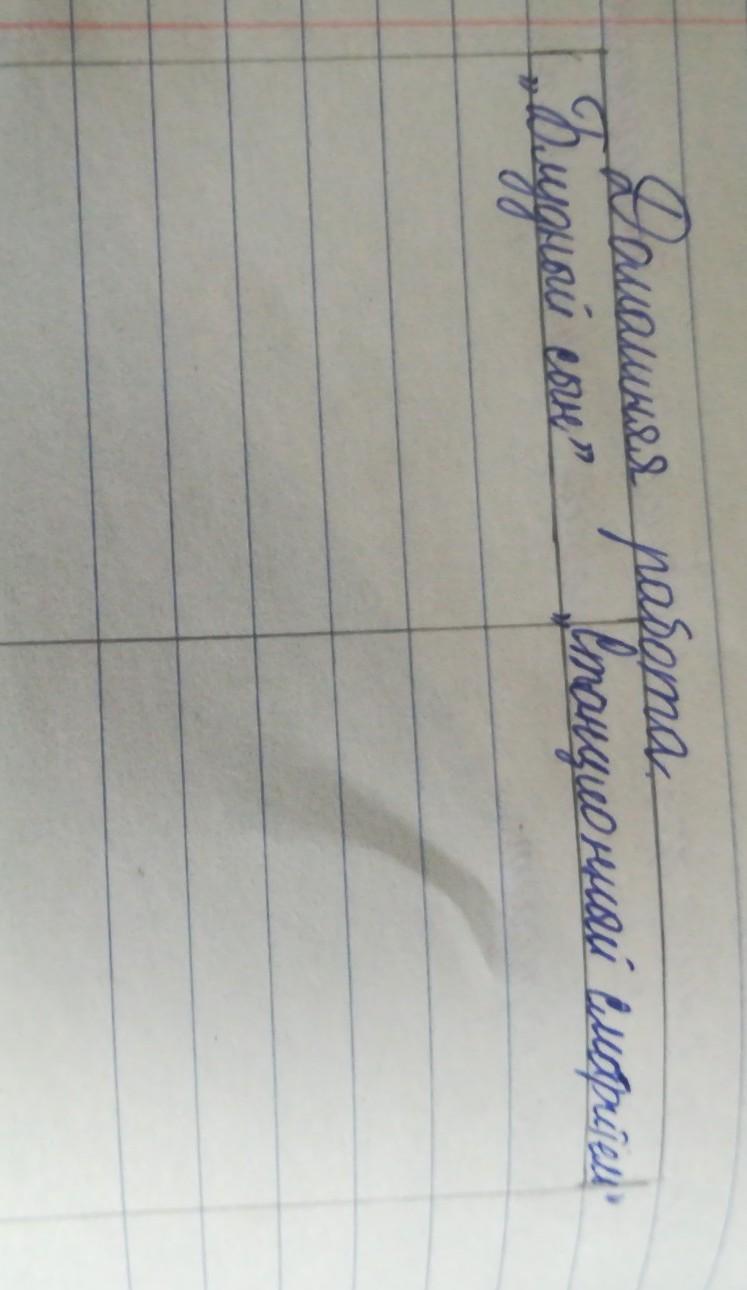 Домашняя работа.
„Блудный сын” „Станционный смотритель”